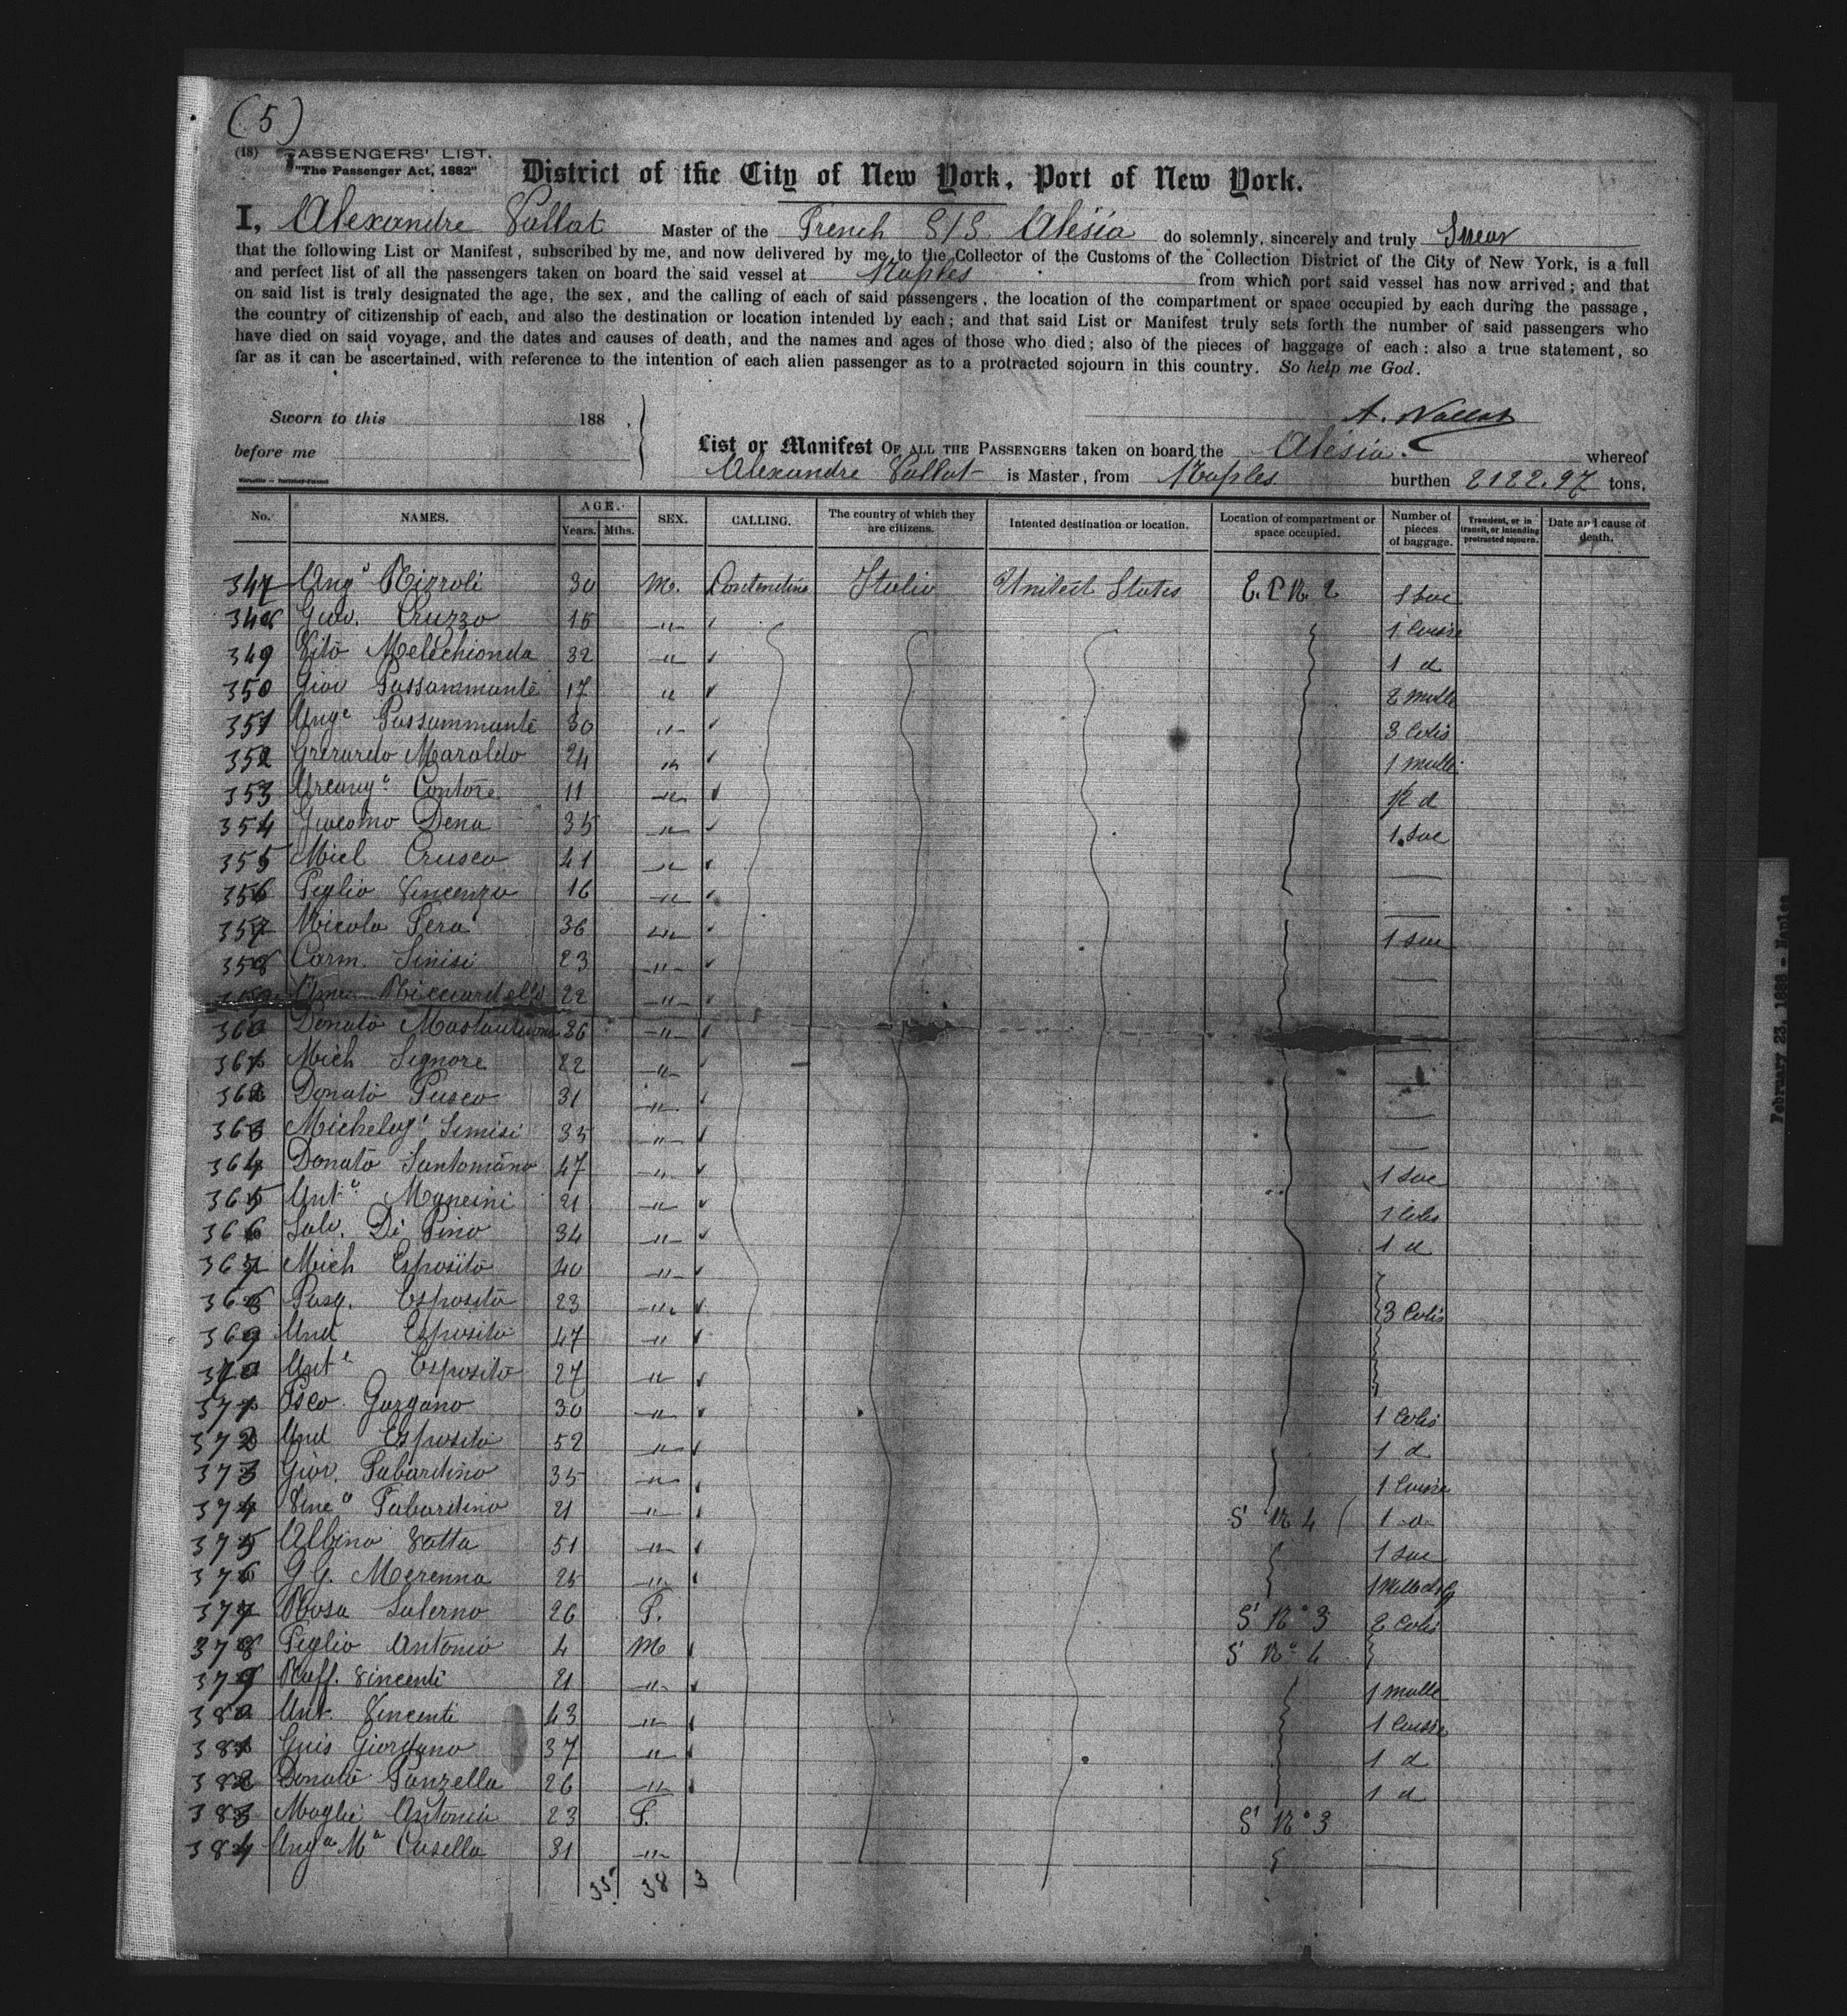 (5)
(18) PASSENGERS' LIST.
"The Passenger Act, 1882"
District of the City of New York, Port of New York.
I, Alexandre Vallat Master of the French S/S. Alésia do solemnly, sincerely and truly Swear
that the following List or Manifest, subscribed by me, and now delivered by me to the Collector of the Customs of the Collection District of the City of New York, is a full
and perfect list of all the passengers taken on board the said vessel at Naples from which port said vessel has now arrived; and that
on said list is truly designated the age, the sex, and the calling of each of said passengers, the location of the compartment or space occupied by each during the passage,
the country of citizenship of each, and also the destination or location intended by each; and that said List or Manifest truly sets forth the number of said passengers who
have died on said voyage, and the dates and causes of death, and the names and ages of those who died; also of the pieces of baggage of each: also a true statement, so
far as it can be ascertained, with reference to the intention of each alien passenger as to a protracted sojourn in this country. So help me God.
Sworn to this 188 .
A. Vallat
before me
List or Manifest OF ALL THE PASSENGERS taken on board the Alésia. whereof
Alexandre Vallat is Master, from Naples burthen 2122.97 tons.
No. NAMES. AGE. Years. Mths. SEX. CALLING. The country of which they are citizens. Intented destination or location. Location of compartment or space occupied. Number of pieces of baggage. Transient, or in transit, or intending protracted sojourn. Date and cause of death.
347 Ang° Rizzoli 30 M. Contandino Italie United States E. P N. 2 1 sac
348 Giov. Cruzzo 15 -"- 1 caisse
349 Vito Melechionda 32 -"- 1 d
350 Giov Passammante 17 " 2 malle
351 Ang° Passammante 30 -"- 3 Colis
352 Gherardo Maraldo 24 " 1 malle
353 Arcang° Contore 11 -"- 1 d
354 Giacomo Dena 35 -"- 1 sac
355 Micl Crusco 41 -"-
356 Peglio Vincenzo 16 -"-
357 Nicola Pera 36 -"- 1 sac
358 Carm. Sinisi 23 -"-
359 Ricciardella 22 -"-
360 Donato 36 -"-
361 Mich Signore 22 -"-
362 Donato Pusco 31 -"-
363 Michelag' Simisi 35 "
364 Donato Santomano 47 -"- 1 sac
365 Ant° Mancini 21 -"- 1 Colis
366 Salv. Di Pino 34 -"- 1 d
367 Mich Esposito 40 -"-
368 Pasq. Esposito 23 -"- 3 Colis
369 And Esposito 47 -"-
370 Ant° Esposito 27 -"-
371 Fsco Gargano 30 -"- 1 Colis
372 And Esposito 52 -"- 1 d
373 Giov. Tabardino 35 -"- 1 Caisse
374 Vinc° Tabardino 21 -"- S' N 4 1 d
375 Albino Votta 51 -"- 1 sac
376 G.G. Merenna 25 -"-
377 Rosa Salerno 26 F. S' N° 3 2 Colis
378 Peglio Antonio 4 M S' N° 4
379 Raff. Vincenti 21 -"- 1 malle
380 Ant. Vincenti 43 -"- 1 Caisse
381 Guis Giordano 37 -"- 1 d
382 Donato Panzella 26 -"- 1 d
383 Moglie Antonia 23 F. S' N° 3
384 Ang° M° Casella 31 -"-
35 38 3
February 23, 1888 - Naples